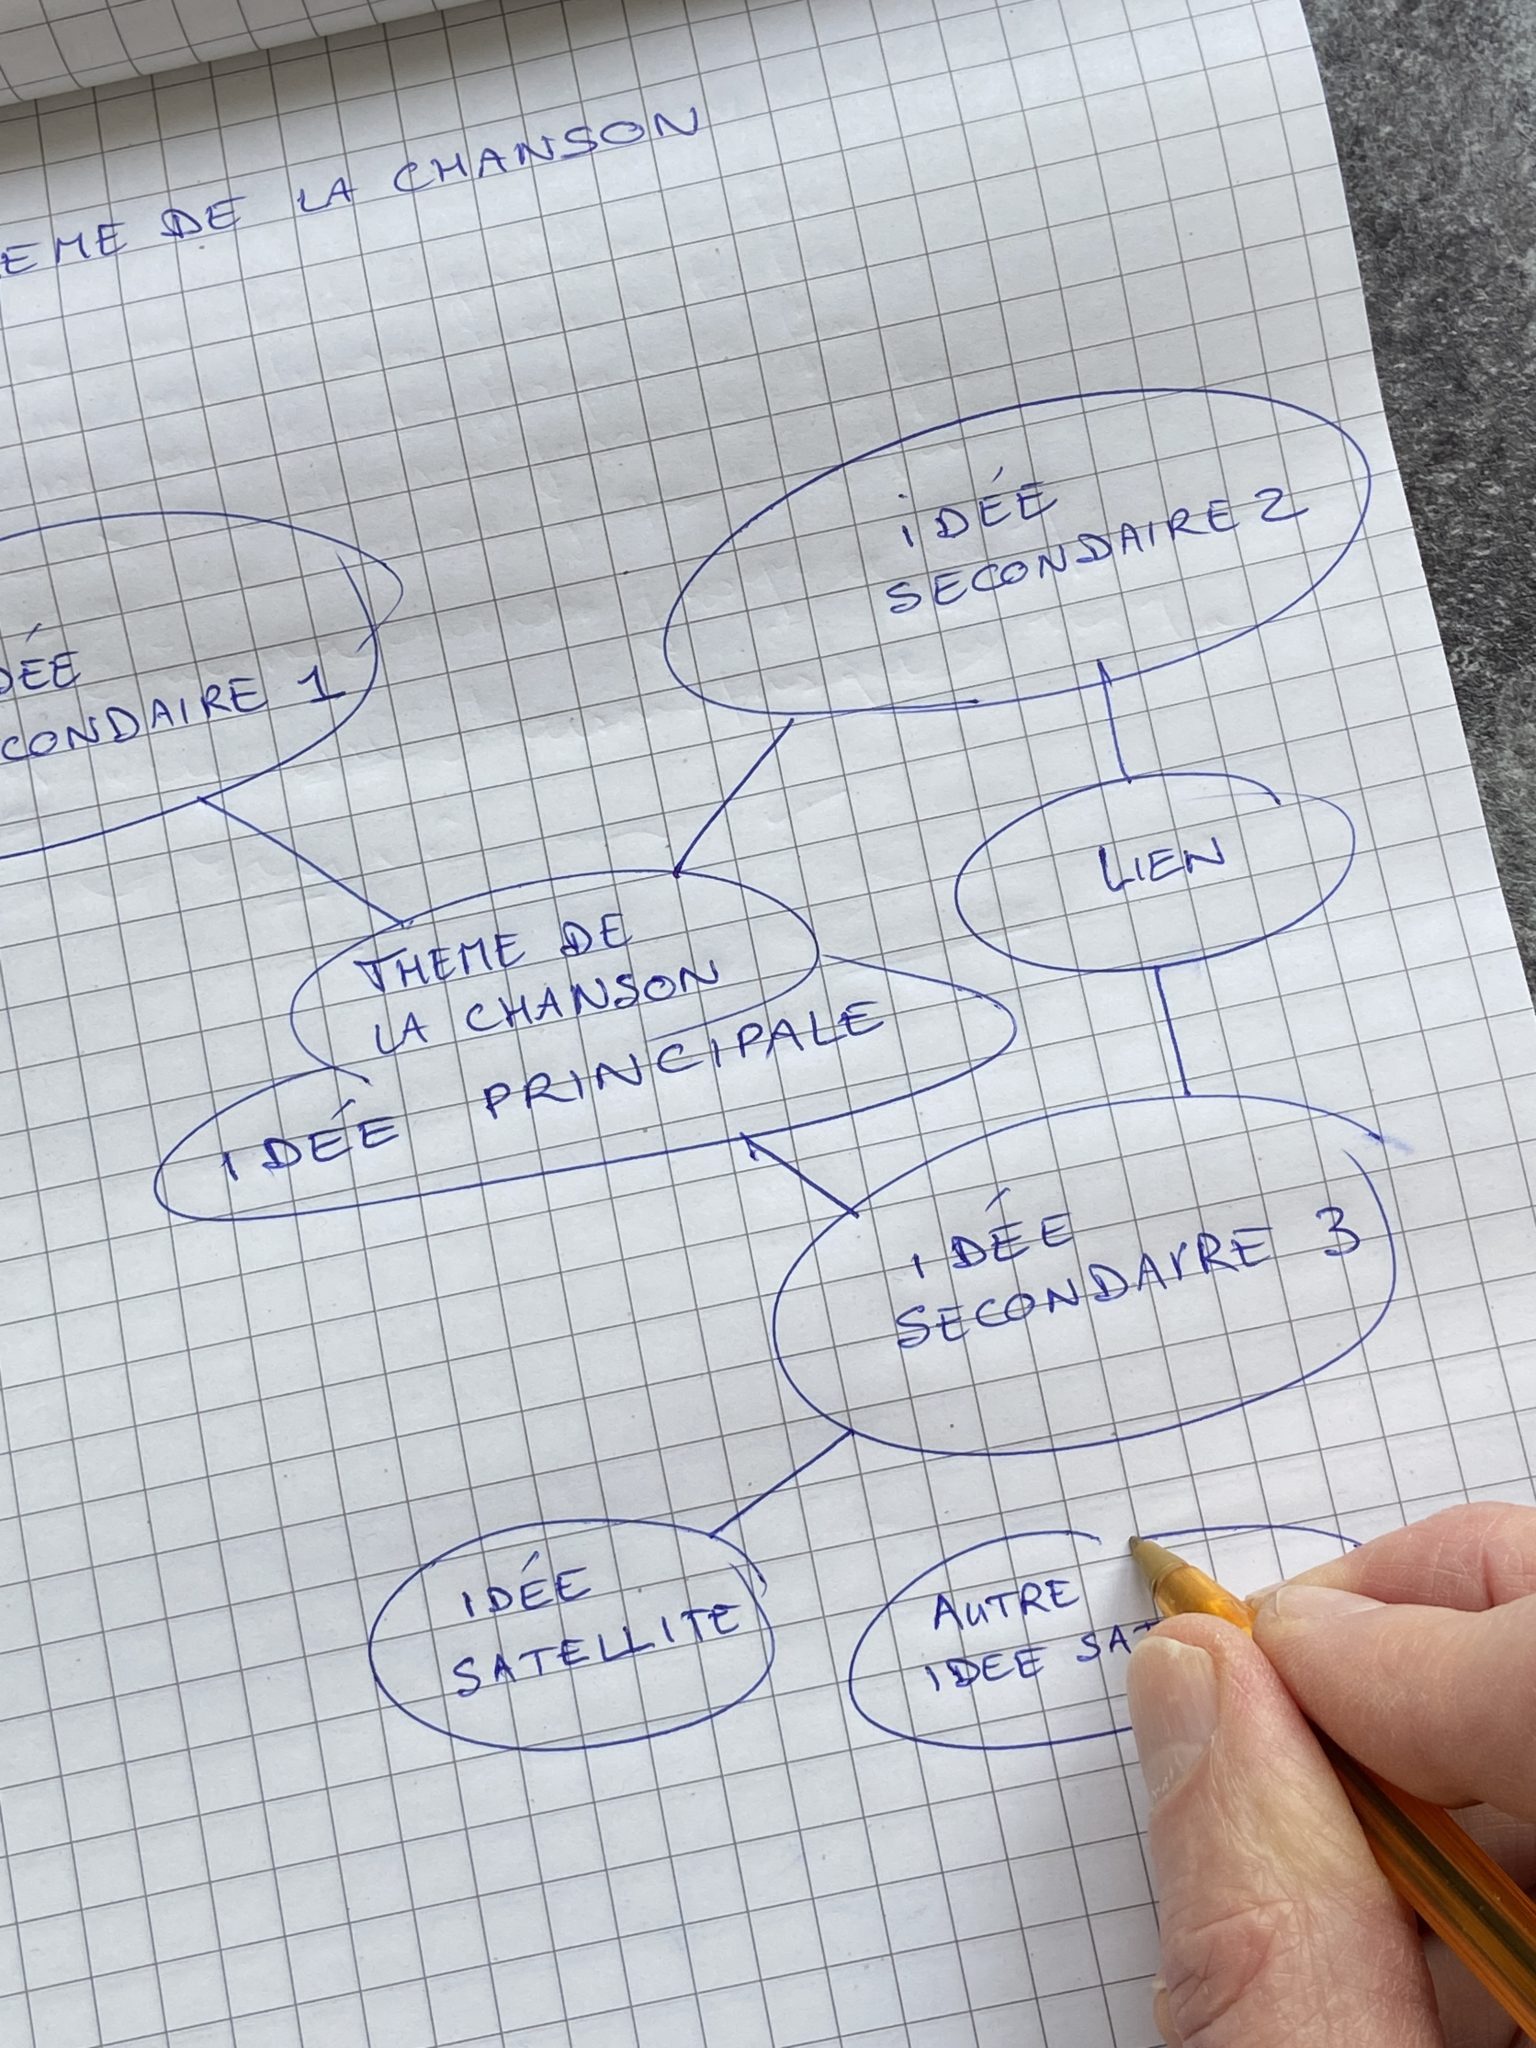 EME DE LA CHANSON
iDÉE
SECONDAIRE 2
DÉE
CONDAIRE 1
LIEN
THEME DE
LA CHANSON
IDÉE PRINCIPALE
IDÉE
SECONDAYRE 3
IDÉE
SATELLITE
AUTRE
IDEE SAT